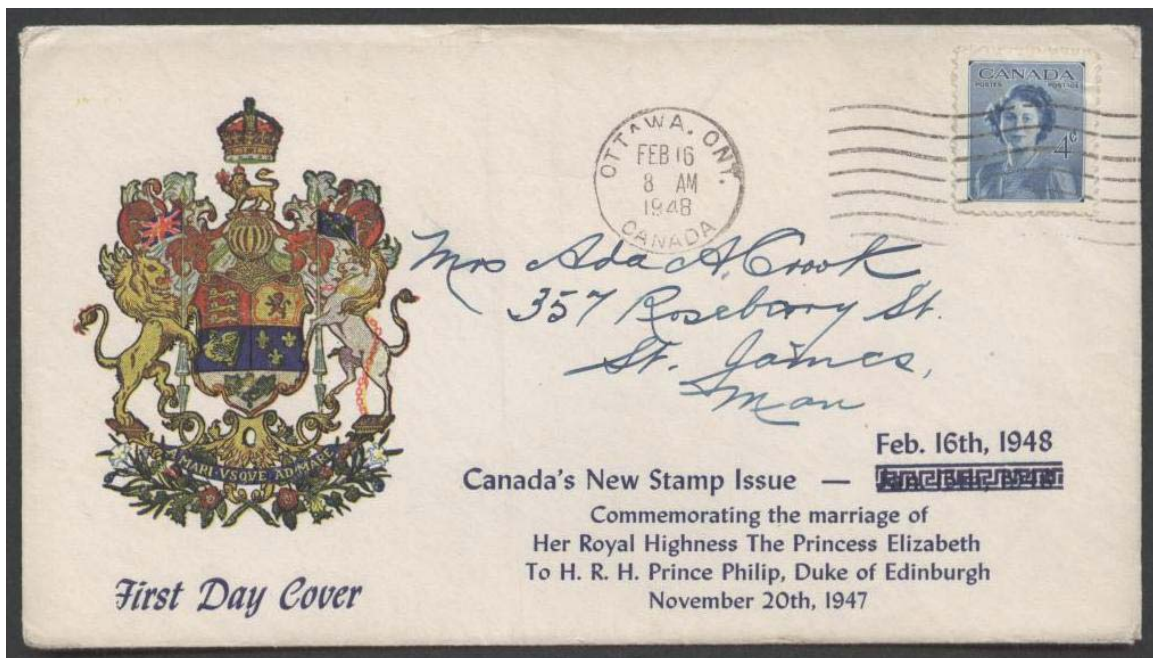 CANADA
POSTES POSTAGE
4¢
OTTAWA, ONT.
FEB 16
8 AM
1948
CANADA
Mrs Ada A. Crook
357 Roseberry St.
St. James,
Man
A MARI VSQVE AD MARE
Feb. 16th, 1948
Canada's New Stamp Issue —
Commemorating the marriage of
Her Royal Highness The Princess Elizabeth
To H. R. H. Prince Philip, Duke of Edinburgh
November 20th, 1947
First Day Cover